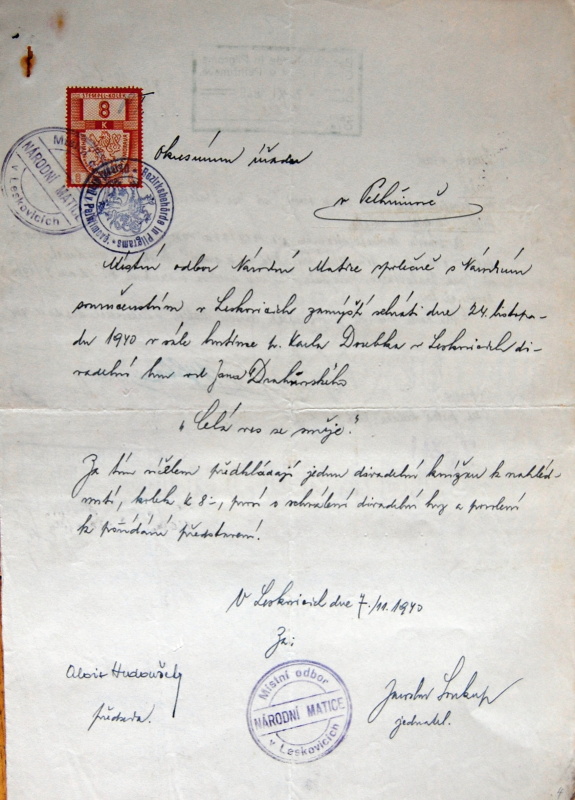 STEMPEL-KOLEK
8
K
Místní odbor
NÁRODNÍ MATICE
v Leskovicích
Bezirksbehörde in Pilgrams
Okresnímu úřadu
v Pelhřimově
Místní odbor Národní Matice společně s Národním
souručenstvím v Leskovicích zamýšlí sehráti dne 24. listopa-
du 1940 v sále hostince p. Karla Doubka v Leskovicích di-
vadelní hru od Jana Drahův­ského
"Celá ves se směje."
Za tím účelem předkládají jednu divadelní knížku k nahléd-
nutí, kolek K 8-, prosí o schválení divadelní hry a povolení
k pořádání představení.
V Leskovicích dne 7./11. 1940
Za:
Alois
předseda.
Místní odbor
NÁRODNÍ MATICE
v Leskovicích
Jaroslav Soukup
jednatel.